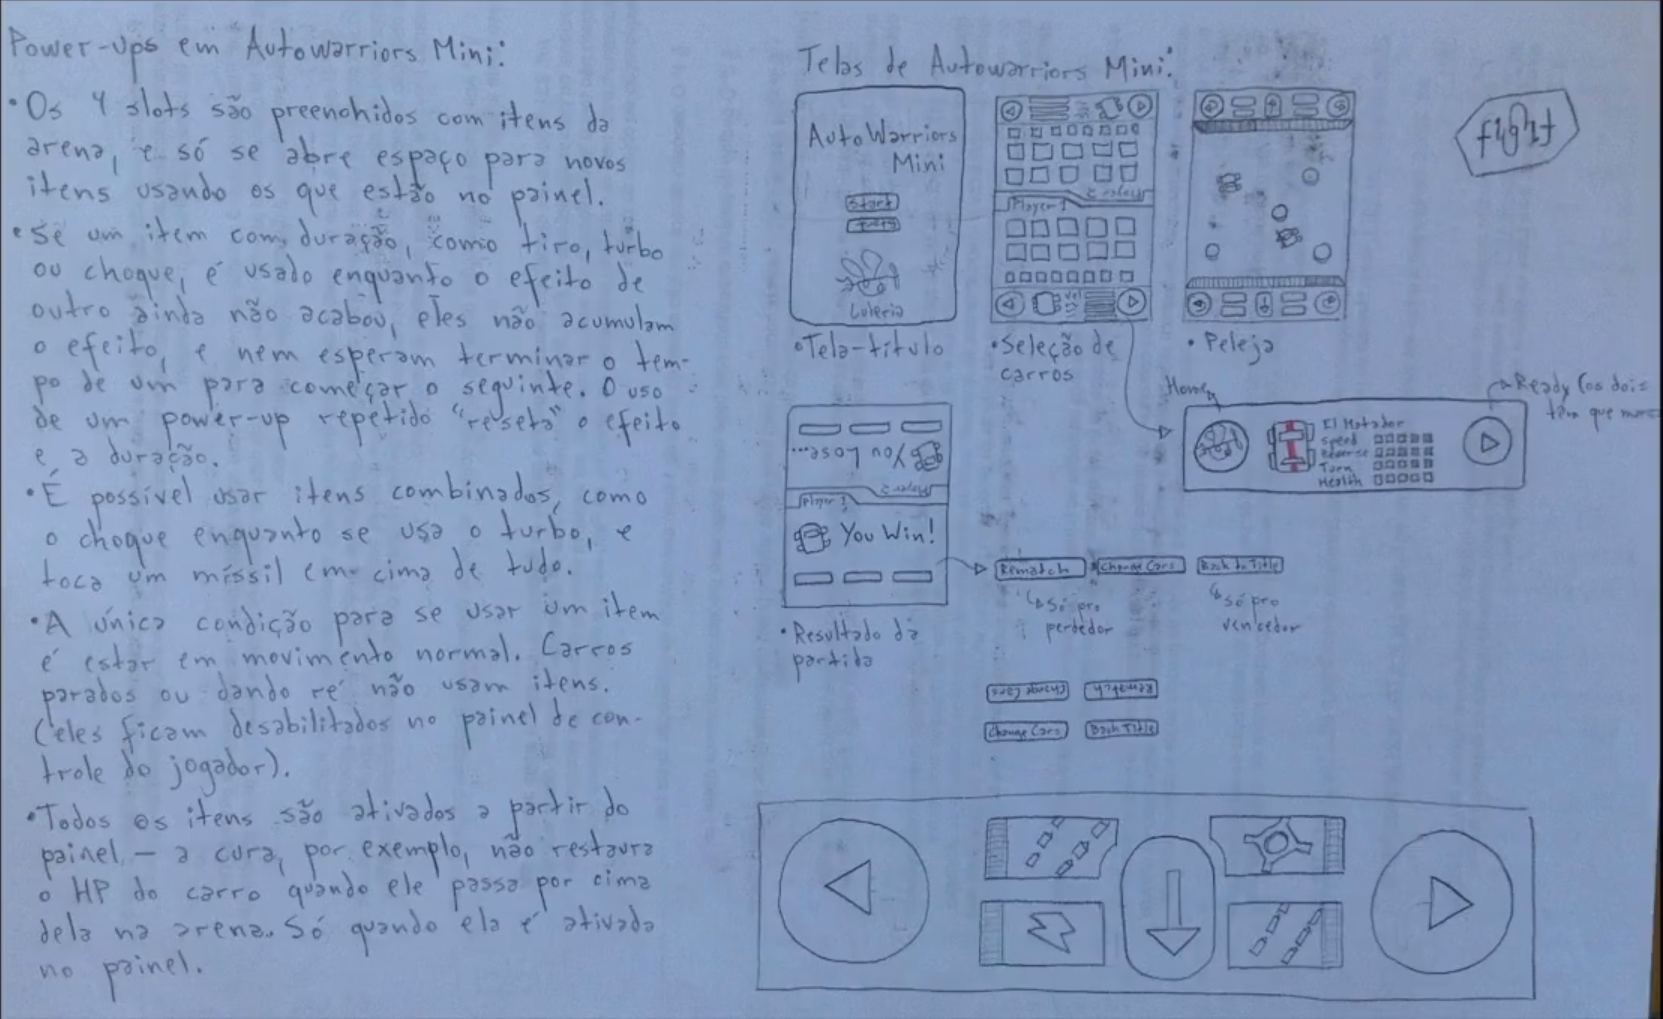 Power-ups em Autowarriors Mini:
• Os 4 slots são preenchidos com itens da
arena, e só se abre espaço para novos
itens usando os que estão no painel.
• Se um item com duração, como tiro, turbo
ou choque, é usado enquanto o efeito de
outro ainda não acabou, eles não acumulam
o efeito, e nem esperam terminar o tem-
po de um para começar o seguinte. O uso
de um power-up repetido "reseta" o efeito
e a duração.
• É possível usar itens combinados, como
o choque enquanto se usa o turbo, e
toca um míssil em cima de tudo.
• A única condição para se usar um item
é estar em movimento normal. Carros
parados ou dando ré não usam itens.
(eles ficam desabilitados no painel de con-
trole do jogador).
• Todos os itens são ativados a partir do
painel – a cura, por exemplo, não restaura
o HP do carro quando ele passa por cima
dela na arena. Só quando ela é ativada
no painel.
Telas de Autowarriors Mini:
AutoWarriors
Mini
Start
Luteria
• Tela-título
Player 2
Player 1
• Seleção de
carros
• Peleja
Fight
Home
Ready (os dois
têm que
El Matador
Speed
Reverse
Turn
Health
You Lose...
Player 2
Player 1
You Win!
• Resultado da
partida
Rematch
Change Cars
Back to Title
Só pro
perdedor
Só pro
vencedor
Change Cars
Rematch
Change Cars
Back Title